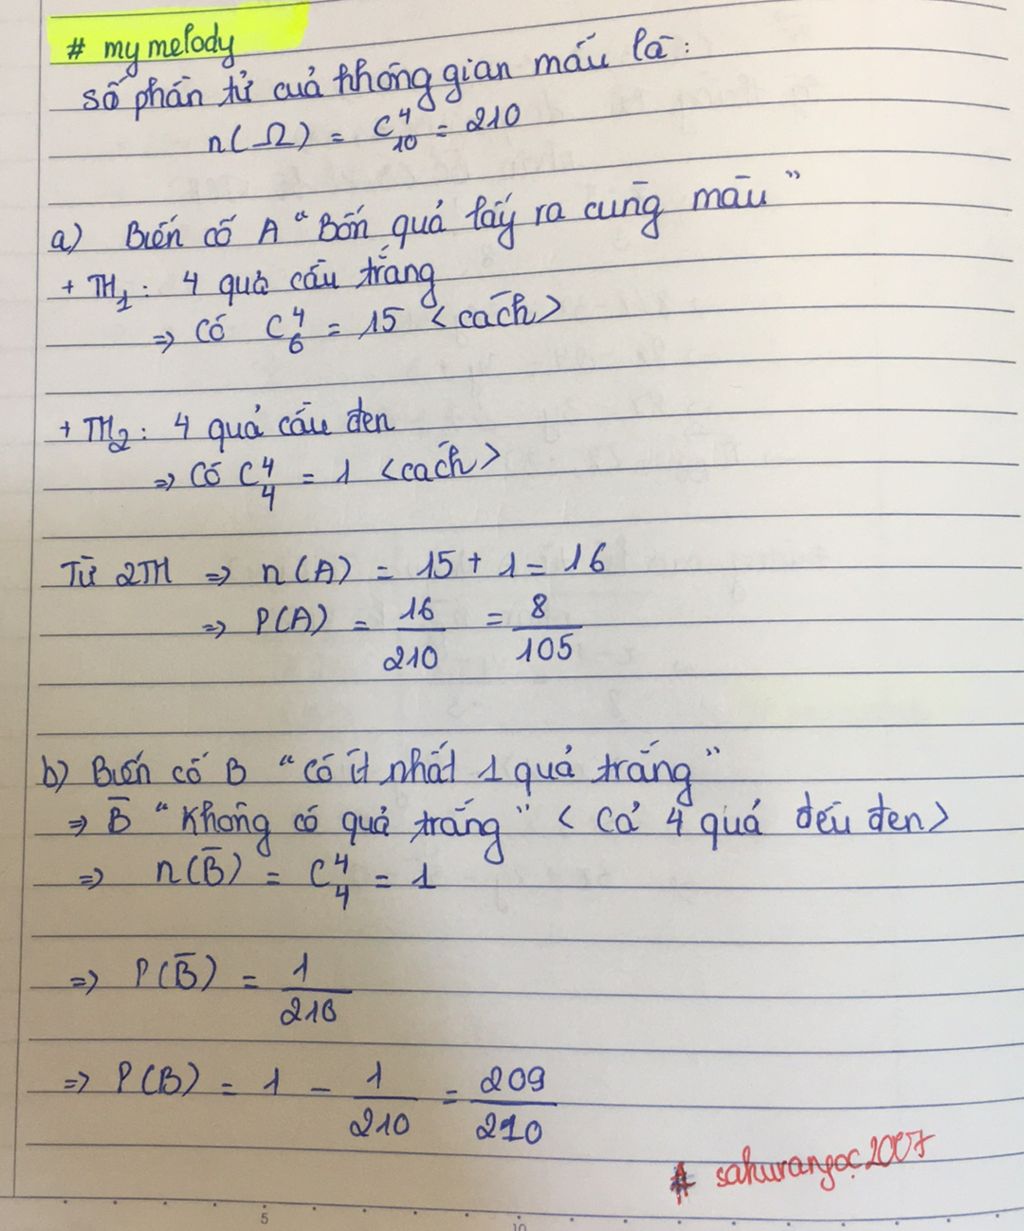 # my melody
số phần tử cuả không gian mẫu là:
n(Ω) = C⁴₁₀ = 210
a) Biến cố A "Bốn quả lấy ra cùng màu"
+ TH₁: 4 quả cầu trắng
⇒ Có C⁴₆ = 15 <cách>
+ TH₂: 4 quả cầu đen
⇒ Có C⁴₄ = 1 <cách>
Từ 2TH ⇒ n(A) = 15 + 1 = 16
⇒ P(A) = 16/210 = 8/105
b) Biến cố B "Có ít nhất 1 quả trắng"
⇒ B̅ "Không có quả trắng" < Cả 4 quả đều đen>
⇒ n(B̅) = C⁴₄ = 1
⇒ P(B̅) = 1/210
⇒ P(B) = 1 - 1/210 = 209/210
# sakurangọc2007
5
10